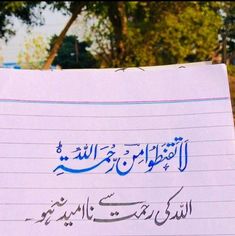 لَا تَقْنَطُوا مِنْ رَّحْمَةِ اللهِ ؕ
اللہ کی رحمت سے نا امید نہ ہو۔